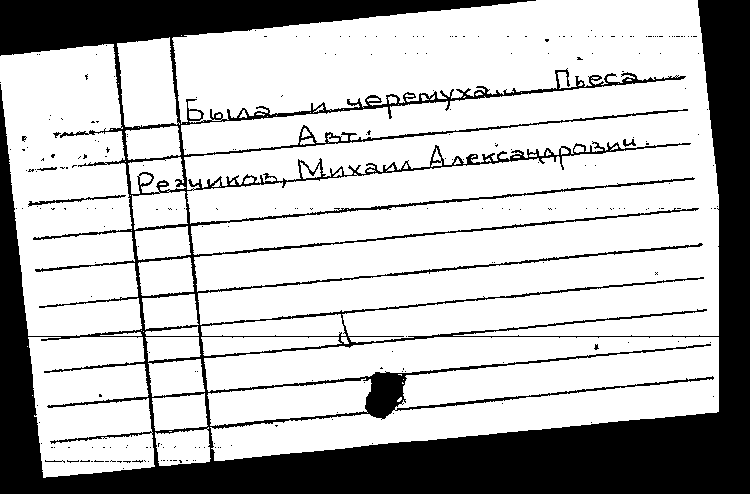 Была и черемуха... Пьеса....
Авт.:
Резчиков, Михаил Александрович.